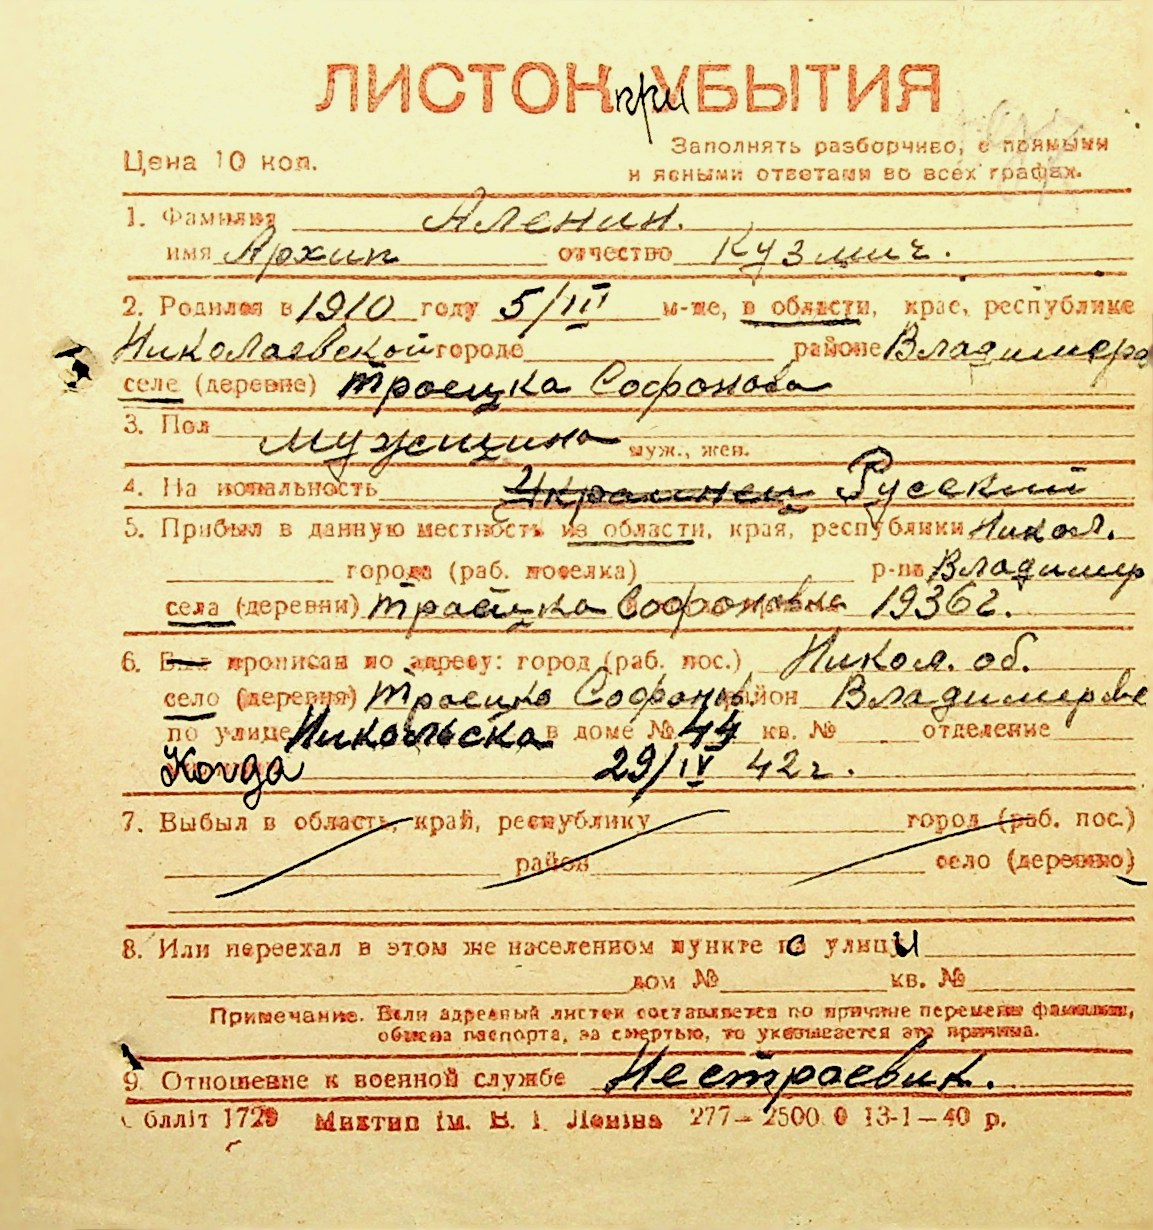 ЛИСТОК при УБЫТИЯ
Цена 10 коп.
Заполнять разборчиво, с прямыми
и ясными ответами во всех графах.
1. Фамилия Аленин.
имя Архип отчество Кузмич.
2. Родился в 1910 году 5/III м-це, в области, крае, республике
Николаевской городе районе Владимеро
селе (деревне) Троецка Софонова
3. Пол мужещина муж., жен.
4. На иональность Украинец Русский
5. Прибыл в данную местность из области, края, республики Никол.
города (раб. поселка) р-на Владимир
села (деревни) Троецка Софоновка 1936 г.
6. Был прописан по адресу: город (раб. пос.) Никол. об.
село (деревня) Троецко Софонов. район Владимирове
по улице Никольска в доме № 44 кв. № отделение
Когда 29/IV 42 г.
7. Выбыл в область, край, республику город (раб. пос.)
район село (деревню)
8. Или переехал в этом же населенном пункте с улицы
дом № кв. №
Примечание. Если адресный листок составляется по причине перемены фамилии,
обмена паспорта, за смертью, то указывается эта причина.
9. Отношение к военной службе Нестроевик.
Облліт 1729 Миктип ім. В. І. Леніна 277—2500 0 13-1—40 р.